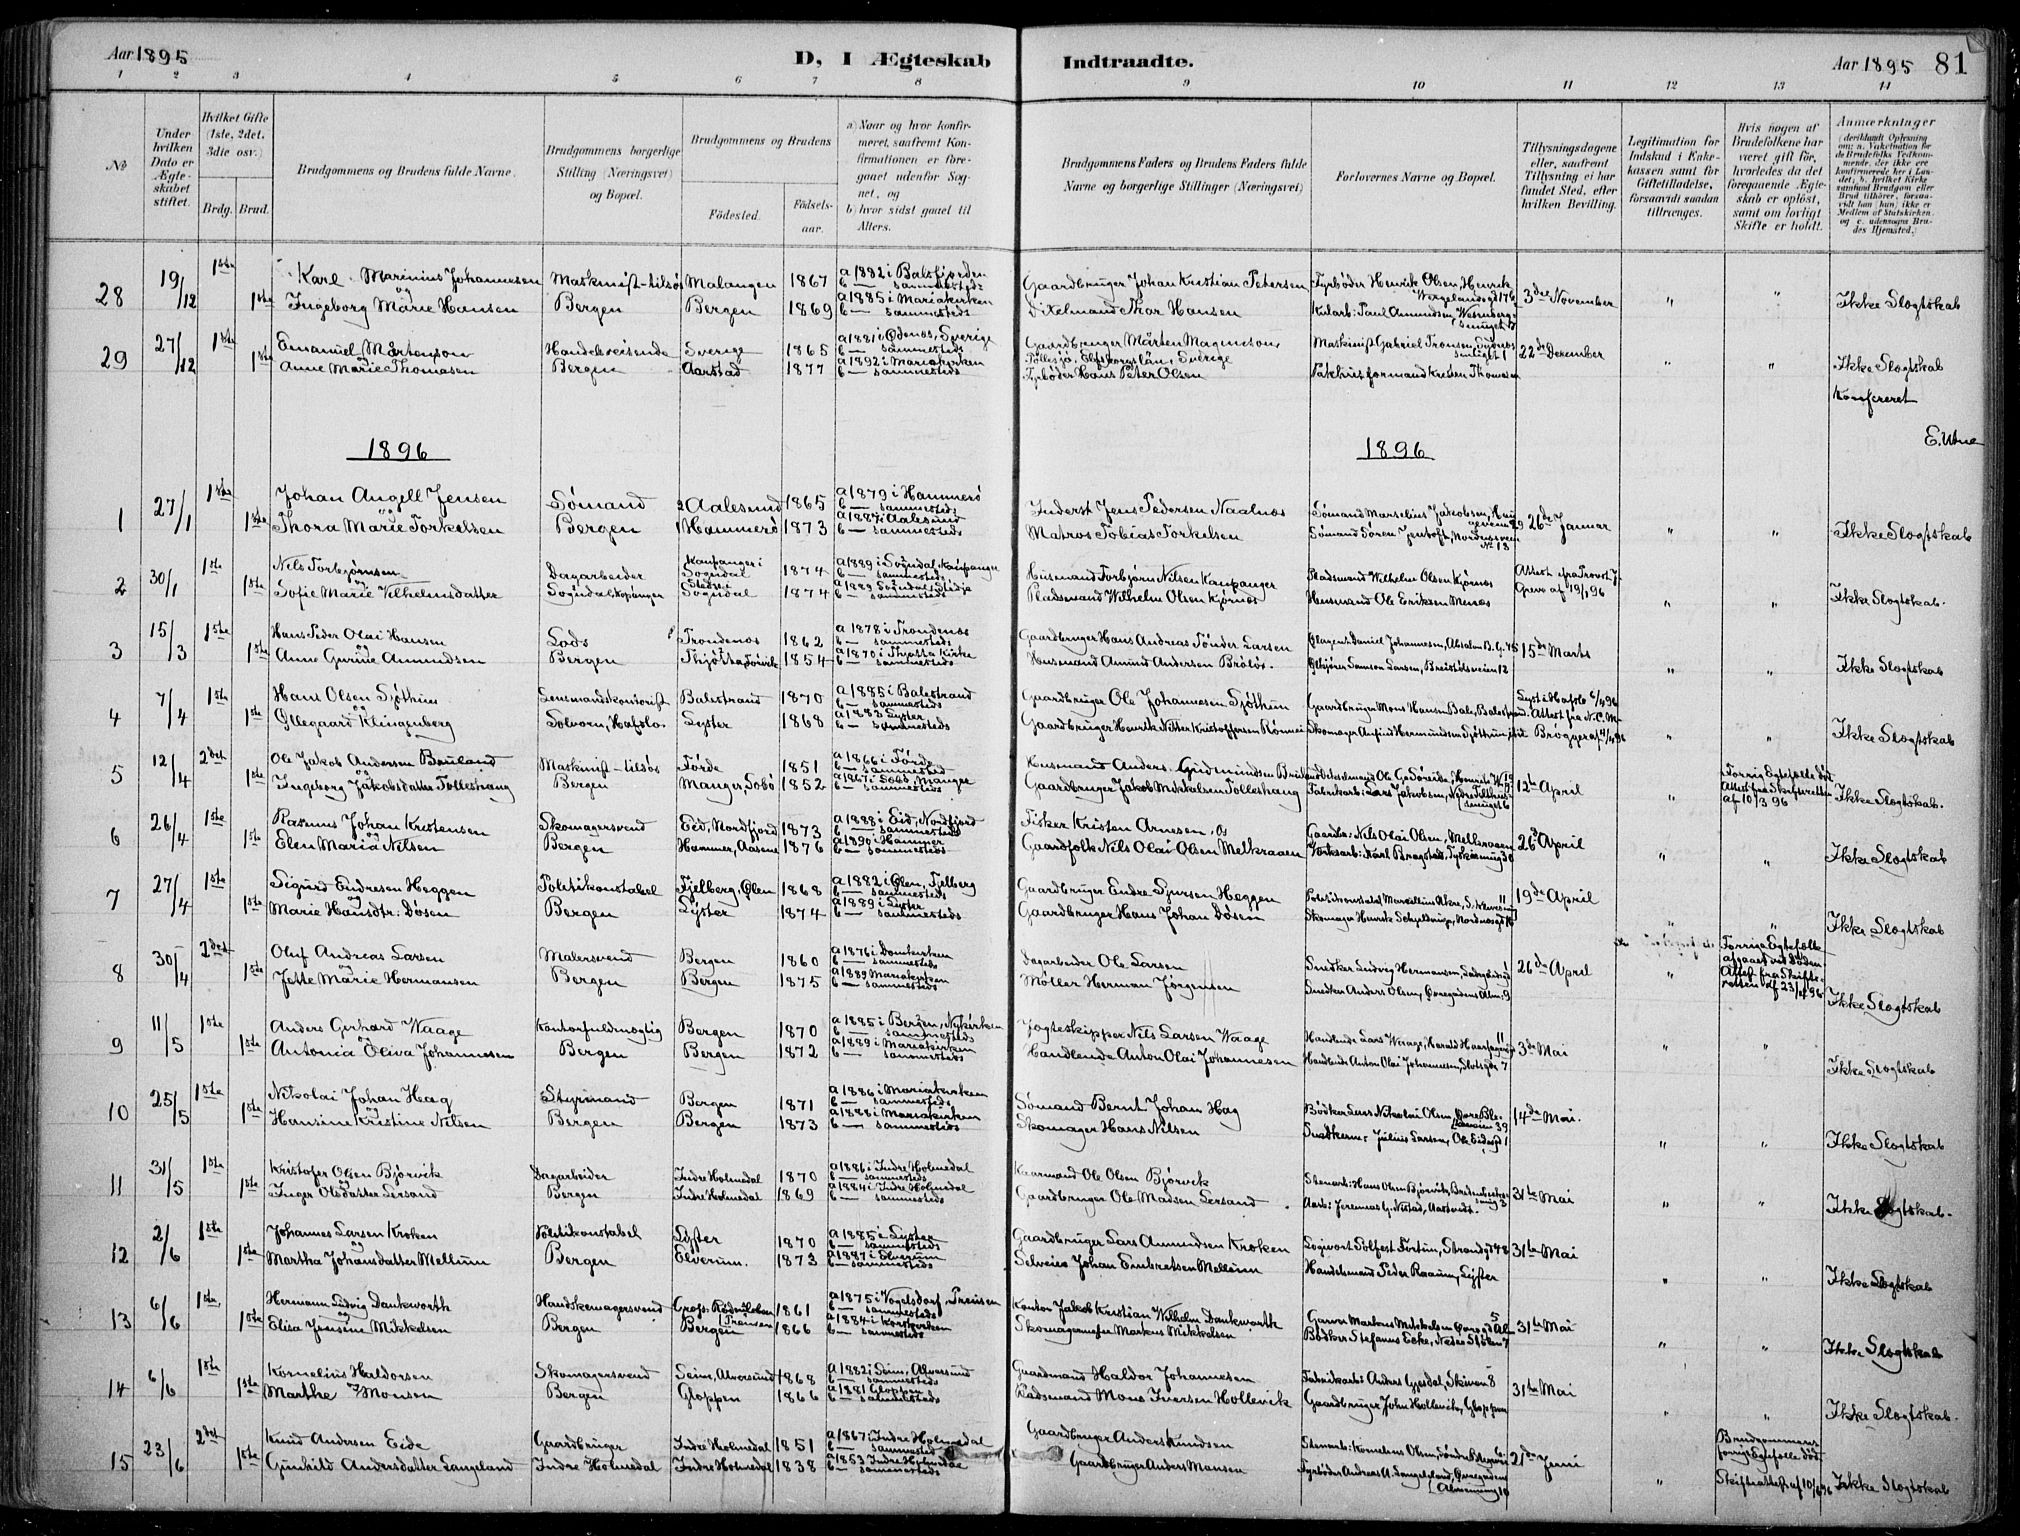 Aar 1895
D, I Ægteskab Indtraadte.
Aar 1895 81
1 2 3 4 5 6 7 8 9 10 11 12 13 14
No
Under hvilken Dato er Ægteskabet stiftet.
Hvilket Gifte (1ste, 2det, 3die osv.)
Brdg. Brud.
Brudgommens og Brudens fulde Navne.
Brudgommens borgerlige Stilling (Næringsvei) og Bopæl.
Brudgommens og Brudens
Fødested.
Fødselsaar.
a) Naar og hvor konfirmeret, saafremt Konfirmationen er foregaaet udenfor Sognet, og
b) hvor sidst gaaet til Alters.
Brudgommens Faders og Brudens Faders fulde Navne og borgerlige Stillinger (Næringsvei)
Forlovernes Navne og Bopæl.
Tillysningsdagene eller, saafremt Tillysning ei har fundet Sted, efter hvilken Bevilling.
Legitimation for Indskud i Enkekassen samt for Giftetilladelse, forsaavidt saadan tiltrænges.
Hvis nogen af Brudefolkene har været gift før, hvorledes da det foregaaende Ægteskab er opløst, samt om lovligt Skifte er holdt.
Anmærkninger
28 19/12 1ste Karl Marinius Johannesen Maskinist-tilsøs Malangen 1867 a 1882 i Balsfjorden b — sammesteds Gaardbruger Johan Kristian Petersen Fyrbøder Henrik Olsen, Henrik Wergelandsgd 17b 3die November " " Ikke Slægtskab
og
1ste Ingeborg Marie Hansen Bergen Bergen 1869 a 1885 i Mariakirken b — sammesteds Dixelmand Thor Hansen Paul Amundsen
29 27/12 1ste Emanuel Mårtenson Handelsreisende Sverige 1865 a 1881 i Ødenæs, Sverige b — sammesteds Gaardbruger Mårten Magnuson, Elfsborgslän, Sverige Maskinist Gabriel Tronsen 22de Dezember " " Ikke Slægtskab
og
1ste Anne Marie Thomasen Bergen Aarstad 1877 a 1892 i Mariakirken b — sammesteds Fyrbøder Hans Peter Olsen Pakhusformand Kristen Thomasen
Konfereret
E. Utne
1896
1896
1 27/1 1ste Johan Angell Jensen Sømand 2 Aalesund 1865 a 1879 i Hammerø b — sammesteds Inderst Jens Pedersen Naalnæs Sømand Marselius Jakobsen 26de Januar " " Ikke Slægtskab
og
1ste Thora Marie Torkelsen Bergen 1 Hammerø 1873 a 1887 i Aalesund b — sammesteds Matros Tobias Torkelsen Sømand Søren Jentoft, Nordnæsveien No 18
2 30/1 1ste Nils Torbjørnsen Dagarbeider Kaupanger i Sogndal 1874 a 1889 i Sogndal, Kaupanger b — sammesteds Husmand Torbjørn Nilsen Kaupanger Pladsmand Wilhelm Olsen Kjørnæs Attest fra Provst J. Greve af 19/1 96 " " Ikke Slægtskab.
og
1ste Sofie Marie Vilhelmsdatter Sogndal Kopanger Sogndal 1874 a 1889 Sogndal, Stedje b — sammesteds Pladsmand Wilhelm Olsen Kjørnæs Husmand Ole Eriksen Menæs
3 15/3 1ste Hans Peder Olai Hansen Lods Trondenæs 1862 a 1878 i Trondenæs b — sammesteds Gaardbruger Hans Andreas Tønder Larsen Daniel Johannesen, Absalon B. G. 45 15de Marts " " Ikke Slægtskab
og
1ste Anne Gurine Amundsen Bergen Thjøtta 1854 a 1870 i Thjøtta Kirke b — sammesteds Husmand Amund Andersen Samson Larsen, Breistølsveien 12
4 7/4 1ste Hans Olsen Sjøthun Lensmandskontorist Balestrand 1870 a 1885 i Balestrand b — sammesteds Gaardbruger Ole Johannesen Sjøthun Gaardbruger Mons Hansen Bale, Balestrand. Lyst i Hafslo 6/4 96 Attest fra N. C. M. Brøgger af 4/4 96 " " Ikke Slægtskab
og
1ste Øllegaard Klingenberg Solvorn, Hafslo Lyster 1868 a 1883 Lyster b — sammesteds Gaardbruger Henrik Nitter Kristoffersen Rønnei Skomager Anfind Hermundsen Sjøthun
5 12/4 2det Ole Jakob Andersen Bruland Maskinist-tilsøs Førde 1851 a 1866 i Førde b — sammesteds Husmand Anders Gudmundsen Bruland Ole G. Søreide 12te April " Forrige Egtefælle død Attest fra Skifteretten af 10/3 96 Ikke Slægtskab.
og
1ste Ingeborg Jakobsdatter Tolleshaug Bergen Manger, Sæbø 1852 a 1867 i Sæbø, Manger b — sammesteds Gaardbruger Jakob Mikkelsen Tolleshaug Fabrikarb: Lars Jakobsen
6 26/4 1ste Rasmus Johan Kristensen Skomagersvend Eid, Nordfjord 1873 a 1888 i Eid, Nordfjord b — sammesteds Fisker Kristen Arnesen, Os Gaardbr: Nils Olai Olsen, Melkraaen 26de April " " Ikke Slægtskab
og
1ste Elen Maria Nilsen Bergen Hammer, Aasene 1876 a 1890 i Hammer b — sammesteds Gaardfolk Nils Olai Olsen Melkraaen Karl Brogstad
7 27/4 1ste Sigurd Endresen Heggen Politikonstabel Fjelberg, Ølen 1868 a 1882 i Ølen, Fjelberg b — sammesteds Gaardbruger Endre Sjursen Heggen Politikonstabel 19de April " " Ikke Slægtskab
og
1ste Marie Hansdtr. Døsen Bergen Lyster 1874 a 1889 i Lyster b — sammesteds Gaardbruger Hans Johan Døsen Skomager Henrik
8 30/4 2det Oluf Andreas Larsen Malersvend Bergen 1860 a 1876 i Domkirken b — sammesteds Dagarbeider Ole Larsen Snedker Ludvig Hermansen 26de April " Forrige Egtefælle afgaaet ved Døden Attest fra Skifteretten af 23/4 96 Ikke Slægtskab
og
1ste Jette Marie Hermansen Bergen Bergen 1875 a 1889 Mariakirken b — sammesteds Møller Herman Jørgensen Snedker Anders Olsen, Øvregadens Alm: 9
9 11/5 1ste Anders Gerhard Waage Kontorfuldmægtig Bergen 1870 a 1885 i Bergen, Nykirken b — sammesteds Jagteskipper Nils Larsen Waage Handlende Lars Waage, Harald Haarfagresgd 11 3de Mai " " Ikke Slægtskab
og
1ste Antonia Oliva Johannesen Bergen Bergen 1872 a 1889 i Mariakirken b — sammesteds Handlende Anton Olai Johannesen Handlende Anton Olai Johannesen, Slotsgd 7
10 25/5 1ste Nikolai Johan Haag Styrmand Bergen 1871 a 1886 i Mariakirken b — sammesteds Sømand Bernt Johan Hag Bødker Lars Nikolai Olsen, Øvre Blekeveien 39 14de Mai. " " Ikke Slægtskab
og
1ste Hansine Kristine Nilsen Bergen Bergen 1873 a 1888 i Mariakirken b — sammesteds Skomager Hans Nilsen Snedkerm: Julius Larsen
11 31/5 1ste Kristofer Olsen Bjørvik Dagarbeider Indre Holmedal 1870 a 1886 i Indre Holmedal b — sammesteds Kaarmand Ole Olsen Bjørvik Stenarb: Hans Olsen Bjørvik 31te Mai " " Ikke Slægtskab.
og
1ste Inger Olsdatter Lersand Bergen Indre Holmedal 1869 a 1884 i Indre Holmedal b — sammesteds Gaardbruger Ole Madsen Lersand Aarb: Jeremias G. Nistad, Aarstadt.
12 2/6 1ste Johannes Larsen Kroken Politikonstabel Lyster 1870 a 1885 i Lyster b — sammesteds Gaardbruger Lars Amundsen Kroken Solfest Fortun, Strandgd 48 31te Mai " " Ikke Slægtskab
og
1ste Martha Johansdatter Mellum Bergen Elverum. 1873 a 1887 i Elverum b — sammesteds Selveier Johan Embretsen Mellum Handelsmand Peder Raaum, Lyster
13 6/6 1ste Hermann Ludvig Dankworth Handskemagersvend Gross Rodensleben Preusen 1861 a 1875 i Vogelsdorf, Preusen b — sammesteds Kantor Jakob Kristian Wilhelm Dankworth Garver Markus Mikkelsen 31te Mai " " Ikke Slægtskab
og
1ste Elisa Jensine Mikkelsen Bergen Bergen 1866 a 1884 i Korskirken b — sammesteds Skomagermester Markus Mikkelsen Bødker Stefanus Ecke, Nedre Stølen 7
14 6/6 1ste Kornelius Haldorsen Skomagersvend Seim, Alversund 1868 a 1882 i Seim, Alversund b — sammesteds Gaardmand Haldor Johannesen Fabrikarb: Anders Gjesdal, Skiven 8 31te Mai " " Ikke Slægtskab.
og
1ste Marthe Monsen Bergen Gloppen 1866 a 1881 Gloppen b — sammesteds Pladsmand Mons Iversen Hollevik Gaardbruger John Hollevik, Gloppen
15 23/6 2det Knud Andersen Eide Gaardbruger Indre Holmedal 1851 a 1867 i Indre Holmedal b — sammesteds Gaardbruger Anders Knudsen Stenarb: Kornelius Olsen 21de Juni " Brudgommens forrige Egtefælle død Skifteattest af 10/6 96 Ikke Slægtskab
1ste Gunhild Andersdatter Langeland Indre Holmedal Indre Holmedal 1838 a 1853 Indre Holmedal b — sammesteds Gaardbruger Anders Monsen Fyrbøder Andreas A. Langeland, Øvregadens Almenning 10